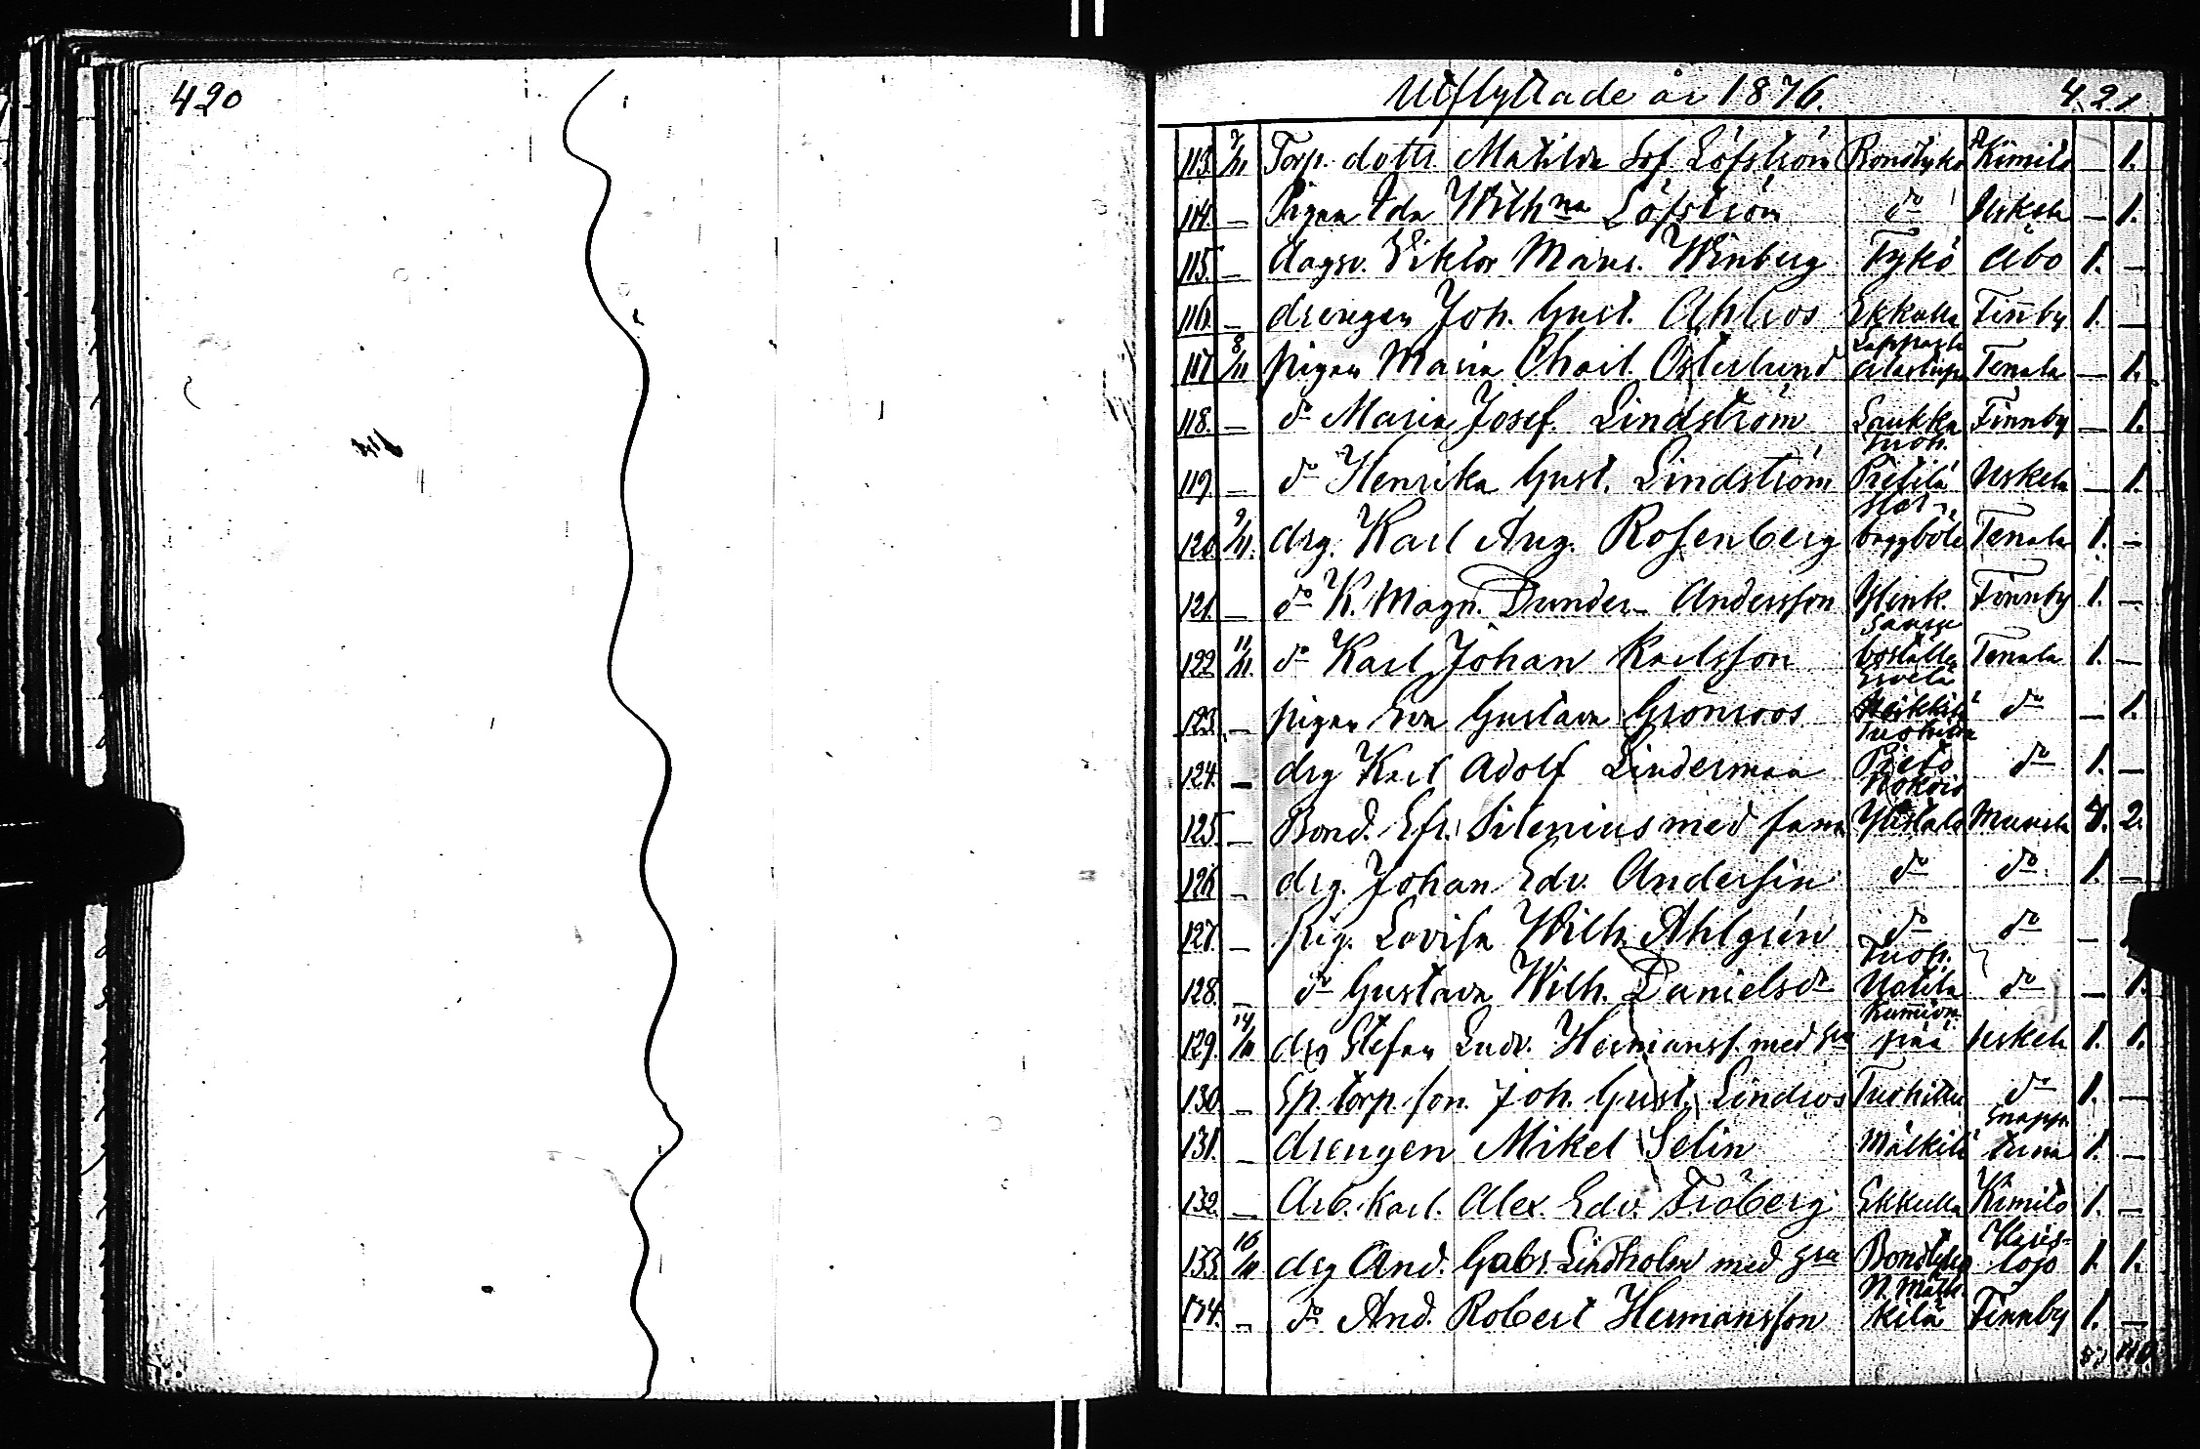 420
Utflyttade år 1876. 421
113. 7/11 Torp. dottr. Matilda Sof. Löfström Bondtykö Kimito — 1.
114. — Pigan Ida Wilhna Löfström do Uskela — 1.
115. — dagsv. Viktor Maur. Winberg Tykö Åbo 1. —
116. — drengen Joh. Gust. Ahlros Ekkulla Finby 1. —
117. 8/11 pigan Maria Charl. Österlund Alastupa Tenala — 1.
118. — do Maria Josef. Lindström Laukka Finnby — 1.
119. — do Henrika Gust. Lindström Pietilä Uskela — 1.
120. 9/11. drg. Karl Aug. Rosenberg baggböle Tenala 1. —
121. — do K. Magn. Dunder- Andersson Ylönk. Finnby 1. —
122. 11/11. do Karl Johan Karlsson boställe Tenala 1. —
123. — pigan Eva Gustava Grönroos do — 1.
124. — drg Karl Adolf Linderman do 1. —
125. — Bond. Efr. Silenius med fam Ylistalo Muurla 4. 2.
126. — drg. Johan Edv. Andersin do do 1. —
127. — pig. Lovisa Wilh. Ahlgrén do do —
128. — do Gustava Wilh. Danielsdr Tuoh. Uotila do — 1.
129. 14/11 drg Stefan Ludv. Hermanss. med hu Uskela 1. 1.
130. — Sp. torp. son. Joh. Gust. Lindros Tuohittu do 1. —
131. — drengen Mikel Selin Mälkilä Snapper tuna 1. —
132. — Arb. karl. Alex. Edv. Fröberg Ekkulla Kimito 1. —
133. 16/11 drg And. Gabr. Lindholm med hu Bondtykö Karis- lojo 1. 1.
134. — do And. Robert Hermansson N. Mälk- kilä Finnby 1. —